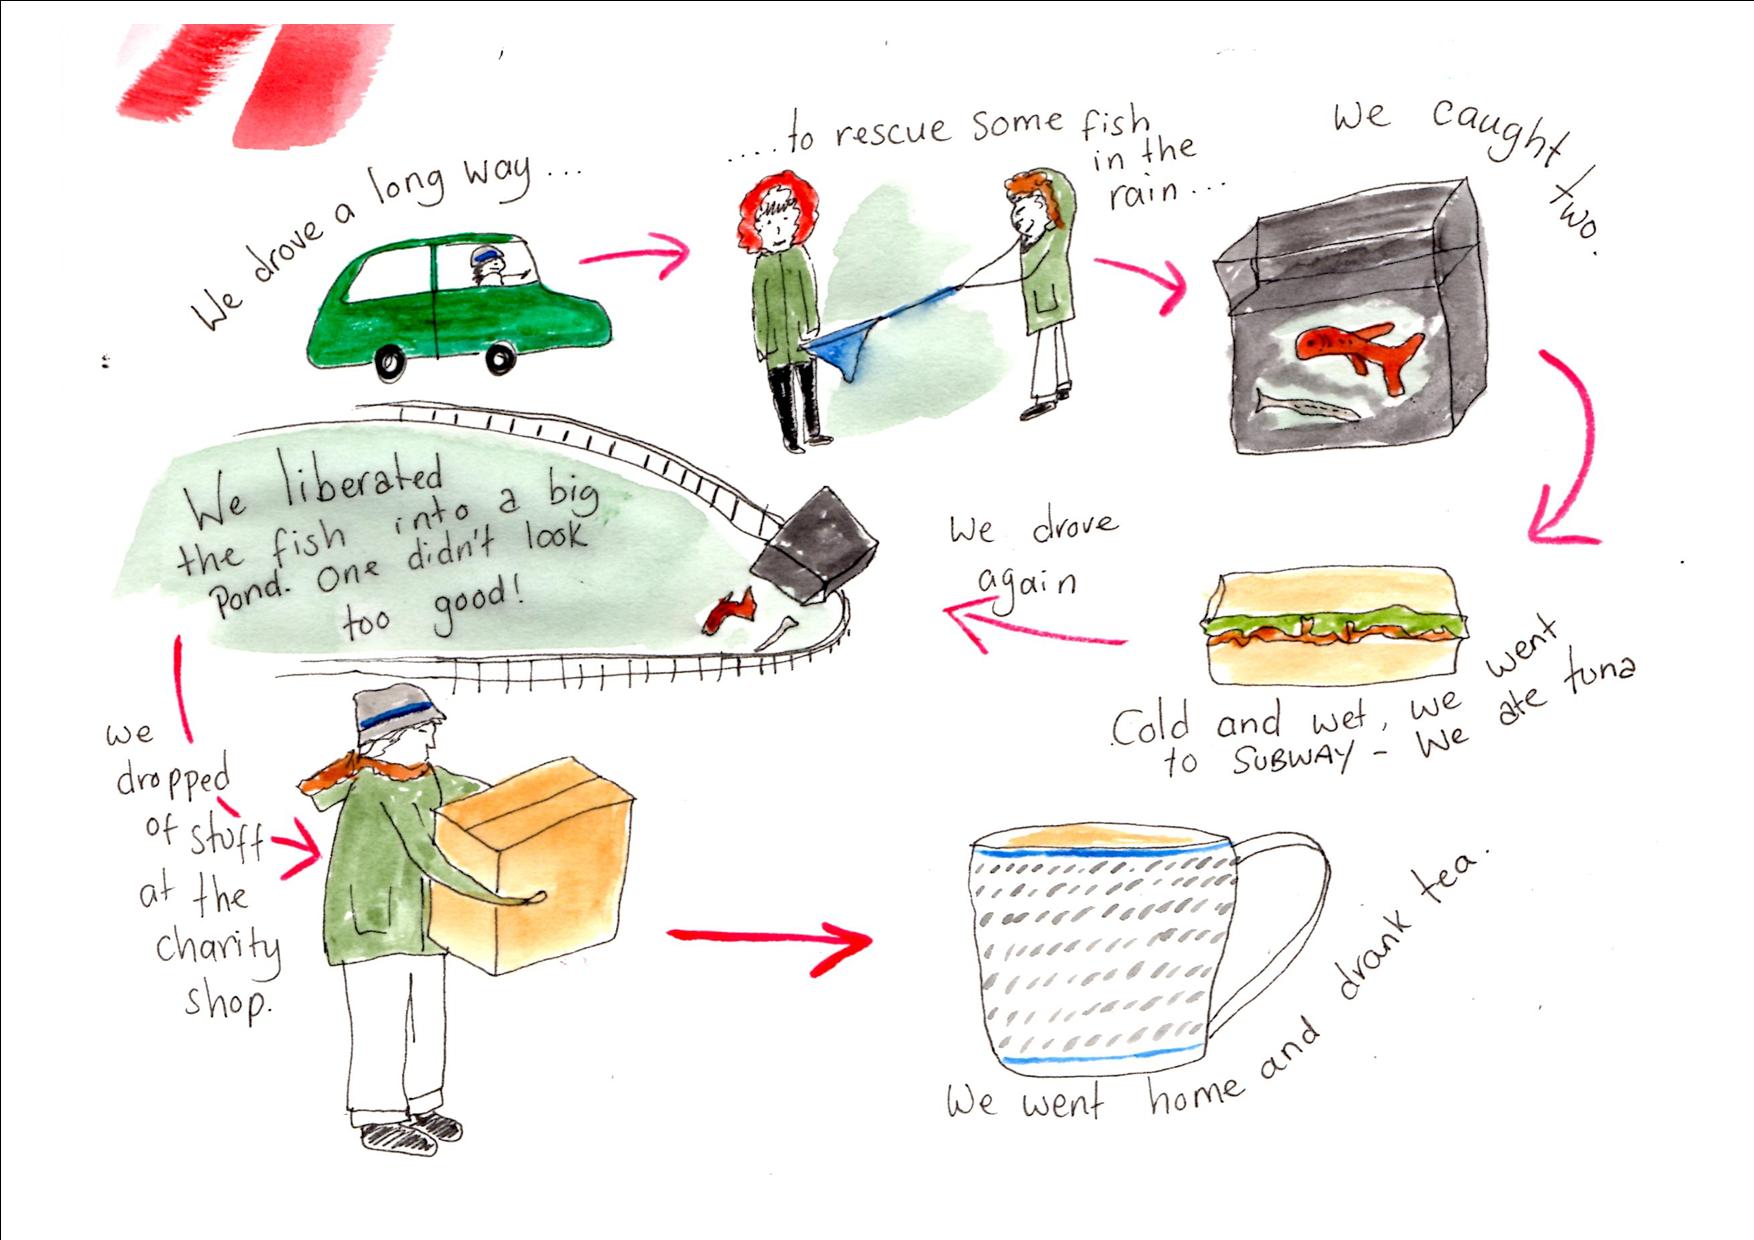 We drove a long way...
....to rescue some fish
in the
rain...
We caught two.
Cold and wet, we went
to SUBWAY - We ate tuna
We drove
again
We liberated
the fish into a big
Pond. One didn't look
too good!
we
dropped
of stuff
at the
charity
shop.
We went home and drank tea.